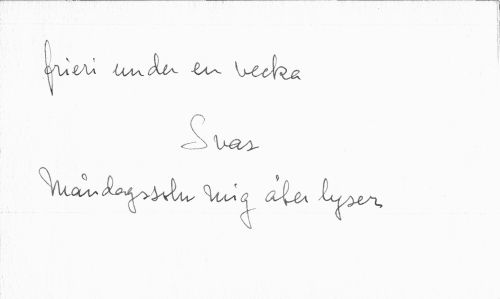 frieri under en vecka
Svar
Måndagssoln mig åter lyser